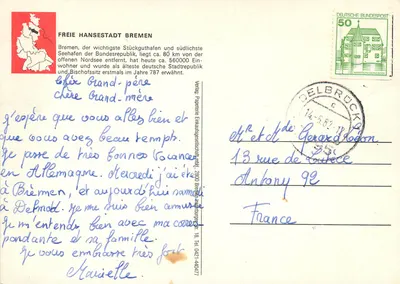 FREIE HANSESTADT BREMEN
Bremen, der wichtigste Stückguthafen und südlichste
Seehafen der Bundesrepublik, liegt ca. 80 km von der
offenen Nordsee entfernt, hat heute ca. 560000 Ein-
wohner und wurde als älteste deutsche Stadtrepublik
und Bischofssitz erstmals im Jahre 787 erwähnt.
cher Grand-père
chère Grand-mère
j'espère que vous allez bien et
que vous avez beau temps.
Je passe de très bonnes vacances
en Allemagne. Mercredi j'ai été
à Brêmen, et aujourd'hui samedi
à Detmold. Je me suis bien amusée
Je m'entends bien avec ma corres
pondante et sa famille.
Je vous embrasse très fort
50
DEUTSCHE BUNDESPOST
DELBRÜCK
Mr et Mme Gerard
13 rue de Lutèce
Antony 92
France